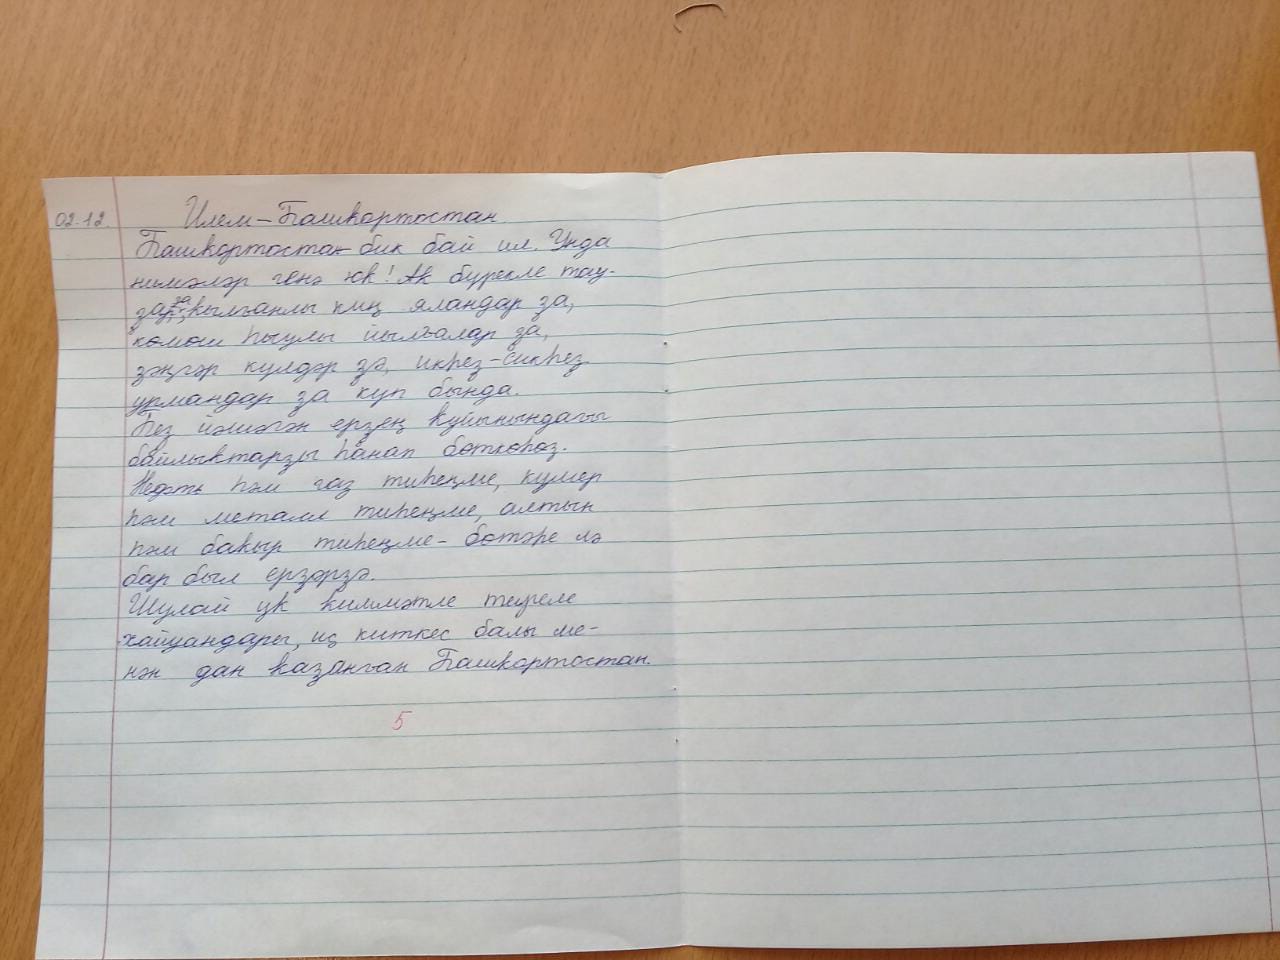 02.12. Илем – Башҡортостан.
Башҡортостан бик бай ил. Унда
нимәләр генә юҡ! Аҡ бүрекле тау-
ҙар ҙа, ҡылғанлы киң яландар ҙа,
көмөш һыулы йылғалар ҙа,
зәңгәр күлдәр ҙә, икһеҙ-сикһеҙ
урмандар ҙа күп бында.
Беҙ йәшәгән ерҙең ҡуйынындағы
байлыҡтарҙы һанап бөткөһөҙ.
Нефть һәм газ тиһеңме, күмер
һәм металл тиһеңме, алтын
һәм баҡыр тиһеңме – бөтәһе лә
бар был ерҙәрҙә.
Шулай уҡ ҡиммәтле тиреле
хайуандары, иҫ киткес балы ме-
нән дан ҡаҙанған Башҡортостан.
5